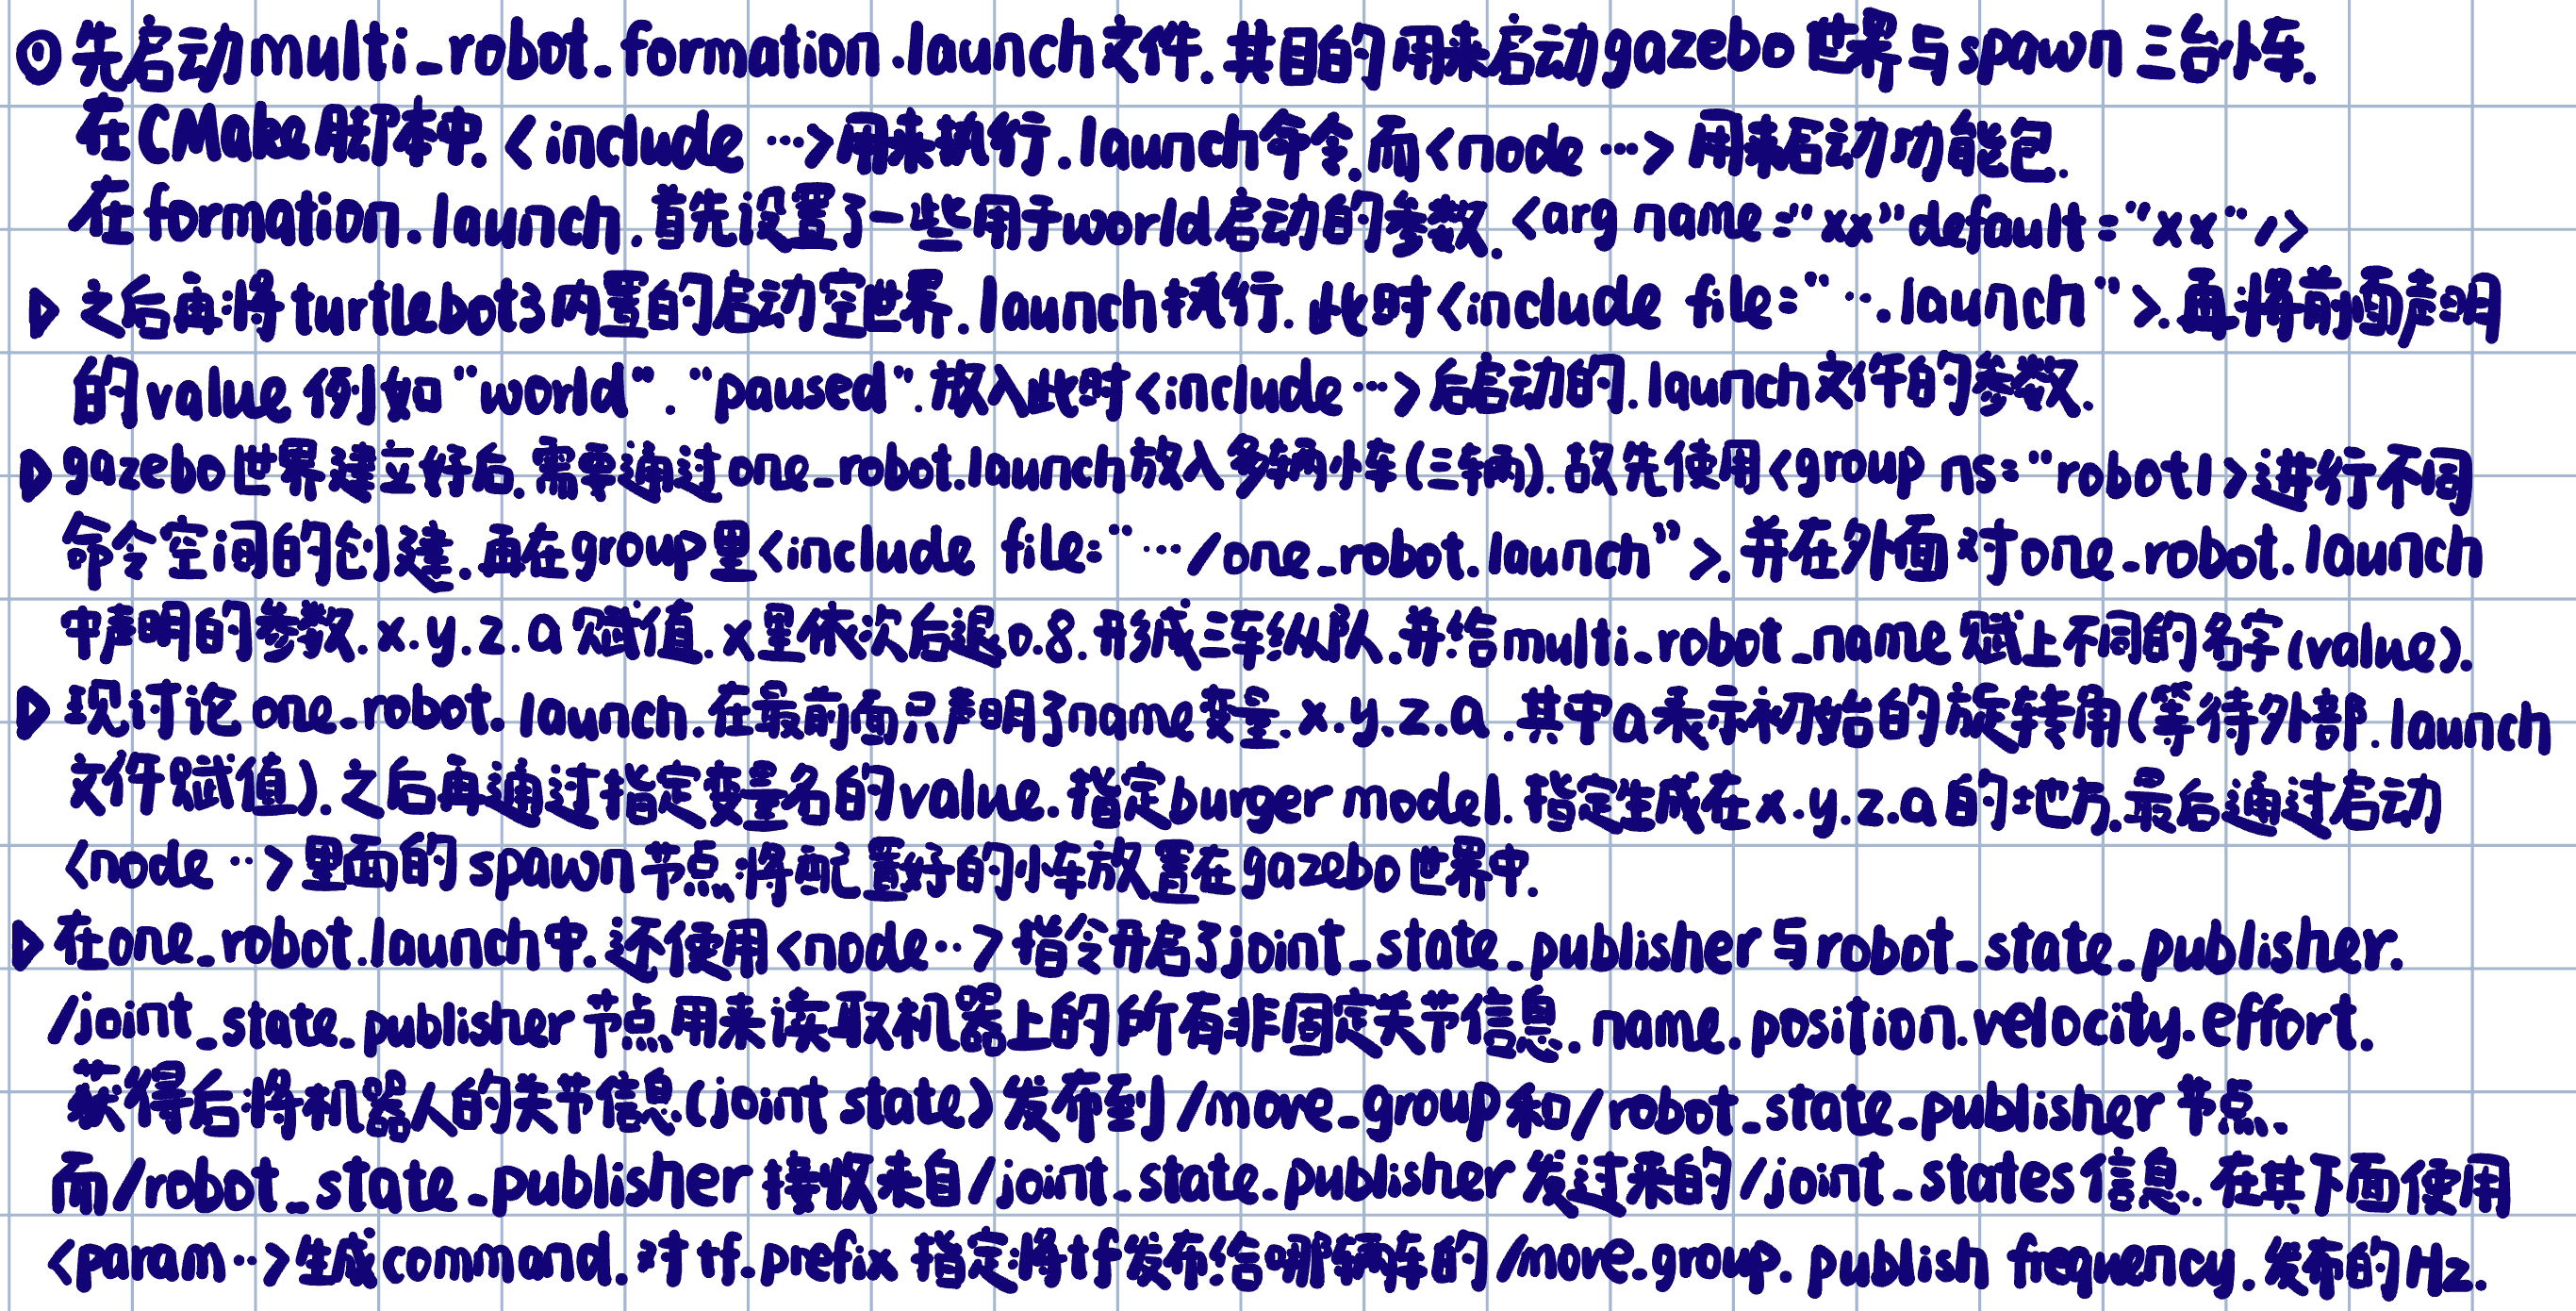 ⊙先启动multi_robot_formation.launch文件.其目的用来启动gazebo世界与spawn三台小车.
在CMake脚本中.<include ···>用来执行.launch命令.而<node ···>用来启动功能包.
在formation.launch.首先设置了一些用于world启动的参数.<arg name="xx"default="xx"/>
▷之后再将turtlebot3内置的启动空世界.launch执行.此时<include file="··.launch">.再将前面声明
的value例如"world"."paused".放入此时<include···>后启动的.launch文件的参数.
▷gazebo世界建立好后.需要通过one_robot.launch放入多辆小车(三辆).故先使用<group ns="robot1>进行不同
命令空间的创建.再在group里<include file="···/one_robot.launch">.并在外面对one_robot.launch
中声明的参数.x.y.z.a赋值.x里依次后退0.8.形成三车纵队.并给multi_robot_name赋上不同的名字(value).
▷现讨论one_robot.launch.在最前面只声明了name变量.x.y.z.a.其中a表示初始的旋转角(等待外部.launch
文件赋值).之后再通过指定变量名的value.指定burger model.指定生成在x.y.z.a的地方.最后通过启动
<node ··>里面的spawn节点.将配置好的小车放置在gazebo世界中.
▷在one_robot.launch中.还使用<node··>指令开启了joint_state_publisher与robot_state_publisher.
/joint_state_publisher节点用来读取机器上的所有非固定关节信息.name.position.velocity.effort.
获得后将机器人的关节信息(joint state)发布到/move_group和/robot_state_publisher节点.
而/robot_state_publisher接收来自/joint_state_publisher发过来的/joint_states信息.在其下面使用
<param··>生成command.对tf.prefix指定将tf发布给哪辆车的/move.group.publish frequency.发布的Hz.